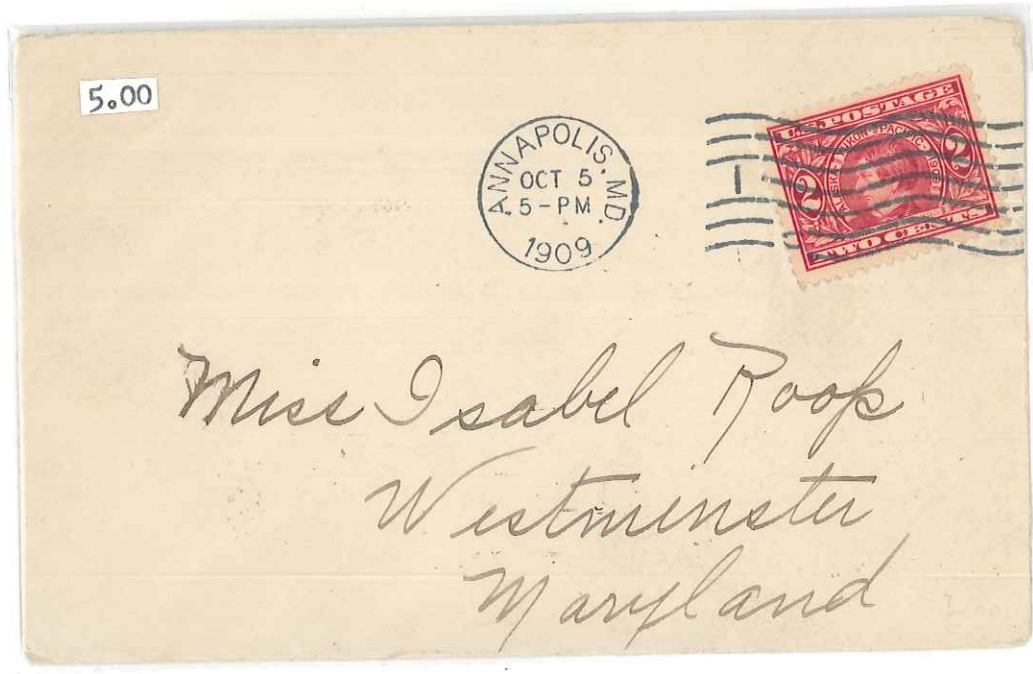 5.00
ANNAPOLIS. MD.
OCT 5
5-PM
1909
1
U.S. POSTAGE
ALASKA YUKON PACIFIC
2 2
TWO CENTS
Miss Isabel Roop
Westminster
Maryland